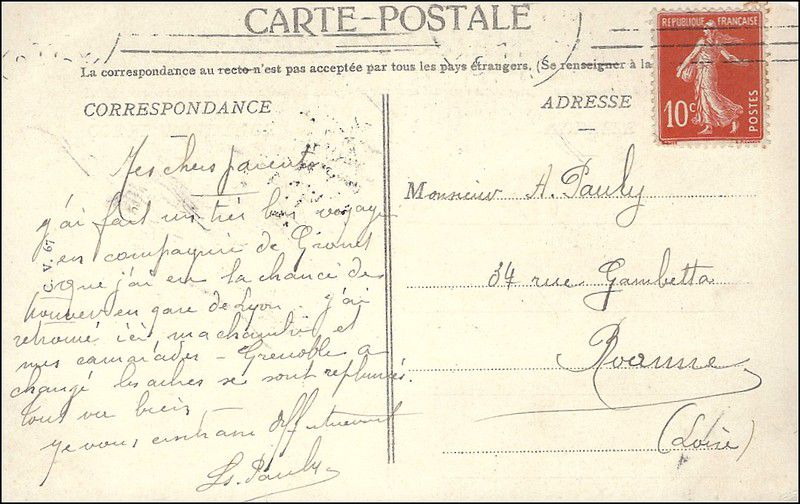 CARTE-POSTALE
La correspondance au recto n'est pas acceptée par tous les pays étrangers. (Se renseigner à la
CORRESPONDANCE
ADRESSE
RÉPUBLIQUE FRANÇAISE
10c
POSTES
C. V. 67
Mes chers parents
j'ai fait un très bon voyage
en compagnie de
que j'ai eu la chance de
trouver en gare de Lyon. j'ai
retrouvé ici ma chambre et
mes camarades - Grenoble a
changé les arbres se sont replumés.
tout va bien
Je vous embrasse affectueusement
Ls. Pauly
Monsieur A. Pauly
34 rue Gambetta
Roanne
(Loire)